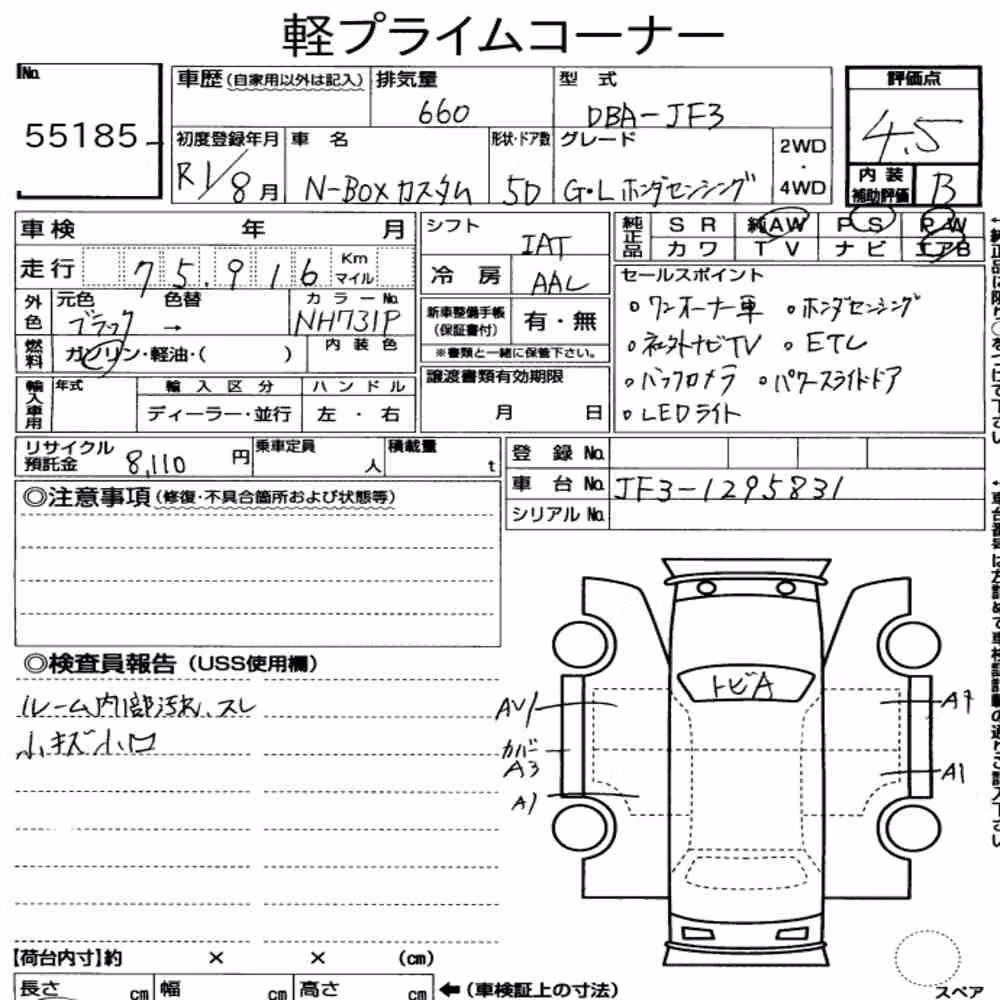 軽プライムコーナー
No.
55185
車歴(自家用以外は記入)
排気量
660
型 式
DBA-JF3
評価点
4.5
初度登録年月
R1/8月
車 名
N-BOXカスタム
形状・ドア数
5D
グレード
G・Lホンダセンシング
2WD
・
4WD
内 装
補助評価
B
車検 年 月
シフト
IAT
純正品
SR 純AW PS P・AW
カワ TV ナビ エアB
走行 75,916 Km マイル
冷 房
AAL
セールスポイント
○ワンオーナー車 ○ホンダセンシング
○社外ナビTV ○ETC
○バックカメラ ○パワースライドドア
○LEDライト
外色
元色 色替
ブラック →
カラーNo.
NH731P
新車整備手帳
(保証書付)
有・無
※書類と一緒に保管下さい。
燃料
ガソリン・軽油・( )
内 装 色
輸入車用
年式
輸 入 区 分
ディーラー・並行
ハ ン ド ル
左 ・ 右
譲渡書類有効期限
月 日
リサイクル
預託金
8,110 円
乗車定員
人
積載量
t
登 録 No.
車 台 No. JF3-1295831
シリアル No.
◎注意事項(修復・不具合箇所および状態等)
◎検査員報告(USS使用欄)
ルーム内部汚れ、スレ
小キズ小凹
トビA
AV1
カバー
A3
A1
A9
A1
【荷台内寸】約 × × (cm)
長さ cm 幅 cm 高さ cm
←(車検証上の寸法)
スペア